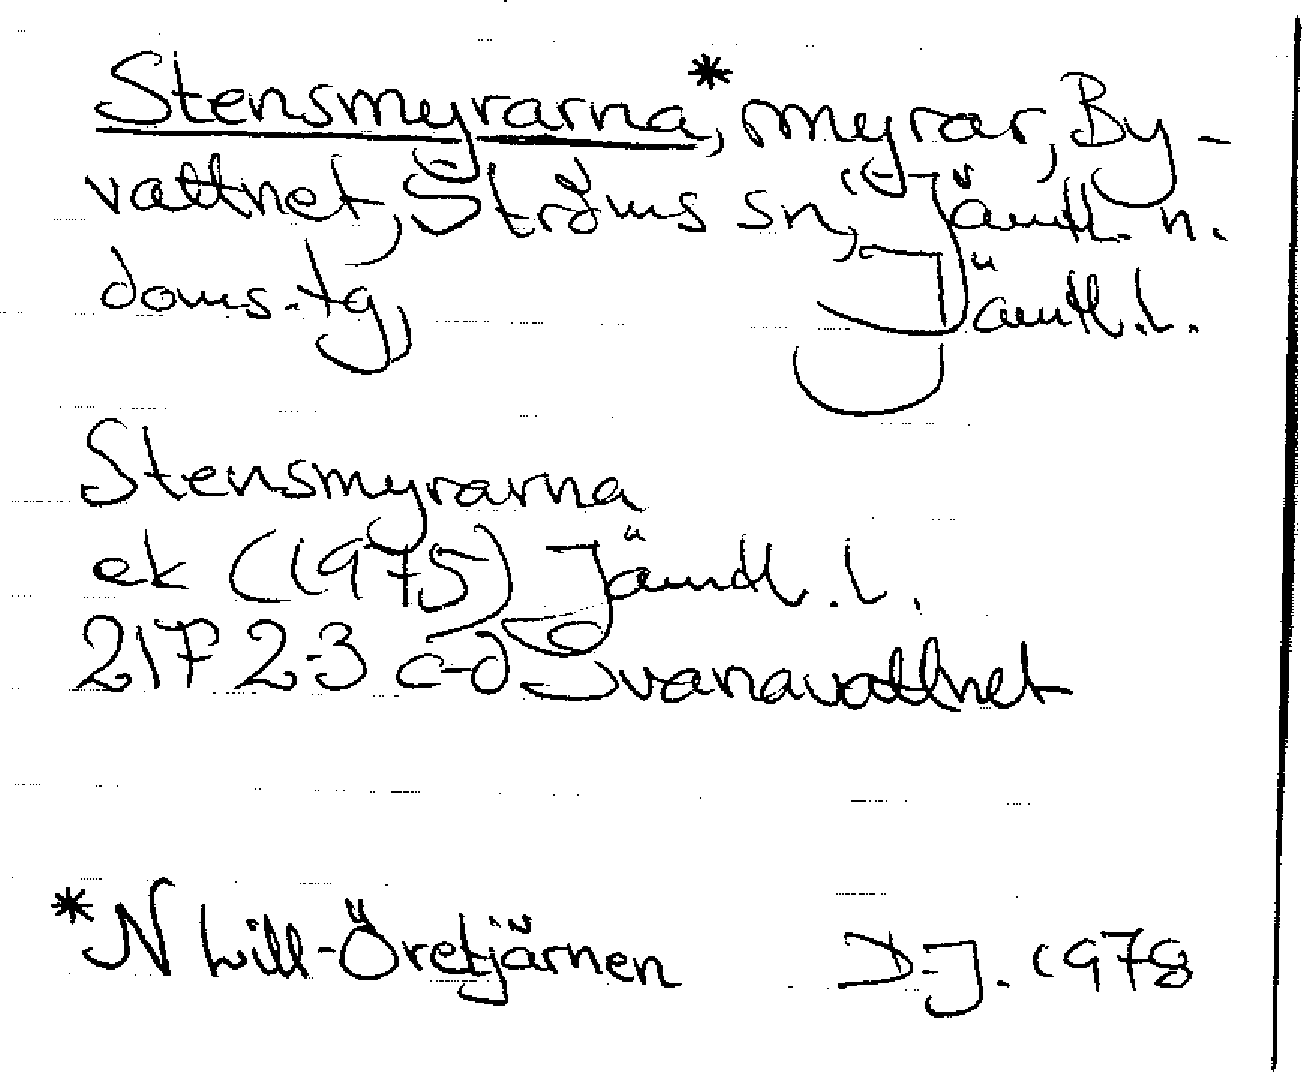 Stensmyrarna*, myrar, By-
vattnet, Ströms sn, Jämtl. n.
doms.tg, Jämtl.l.
Stensmyrarna
ek (1975) Jämtl. l.
21F 2-3 c-d Svanavattnet
*N Lill-Öretjärnen D-J. 1978